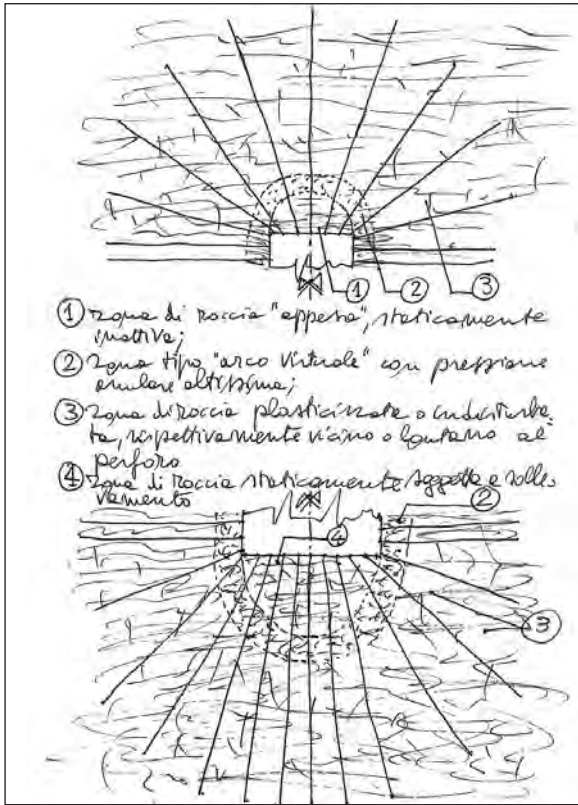 ① ② ③
① zona di roccia "appesa", staticamente
inattiva;
② zona tipo "arco virtuale" con pressione
anulare altissima;
③ zona di roccia plasticizzata o indisturba-
ta, rispettivamente vicino o lontano al
perforo
④ zona di roccia staticamente soggetta a solle-
vamento
②
④
③